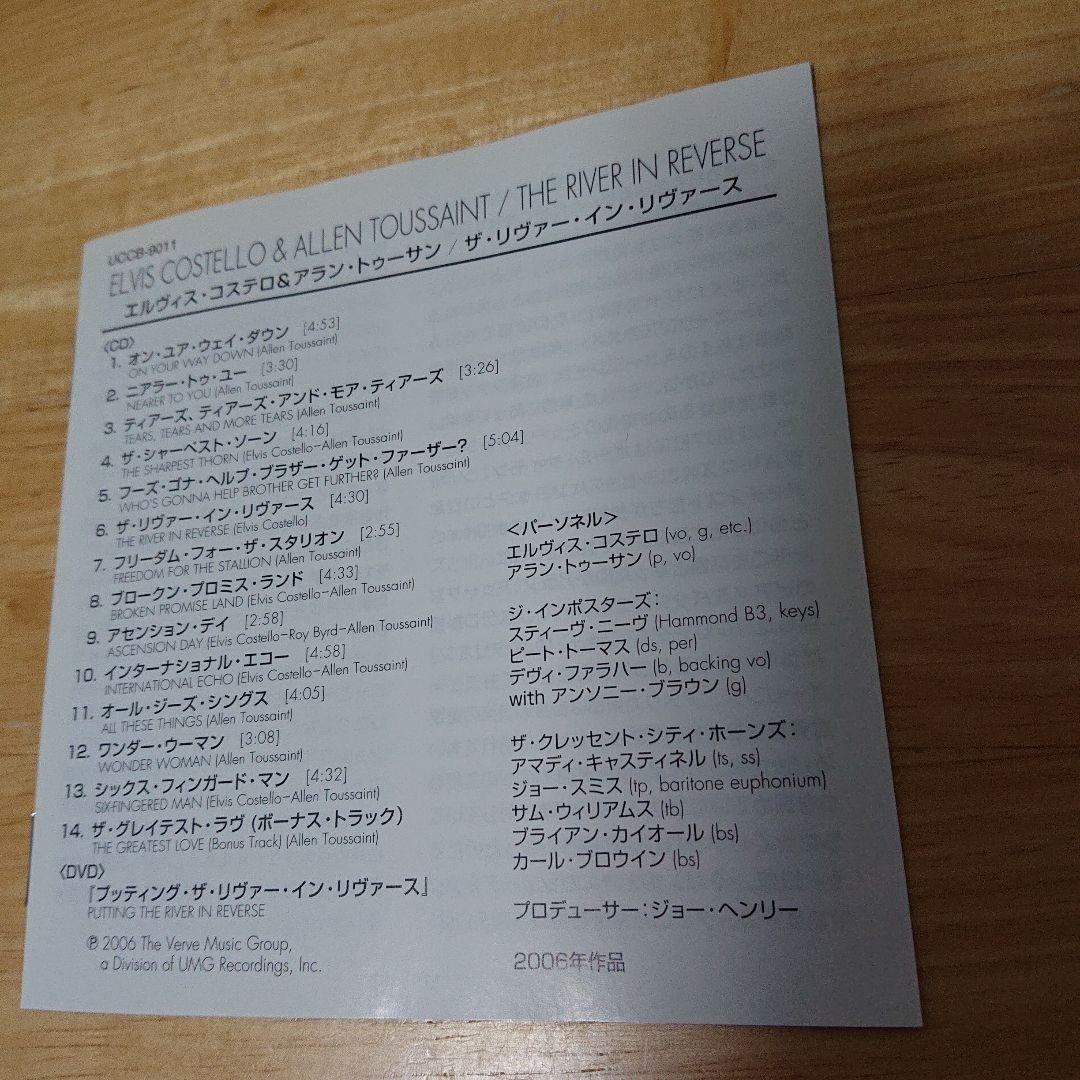 UCCB-9011
ELVIS COSTELLO & ALLEN TOUSSAINT / THE RIVER IN REVERSE
エルヴィス・コステロ&アラン・トゥーサン / ザ・リヴァー・イン・リヴァース
〈CD〉
1. オン・ユア・ウェイ・ダウン [4:53]
ON YOUR WAY DOWN (Allen Toussaint)
2. ニアラー・トゥ・ユー [3:30]
NEARER TO YOU (Allen Toussaint)
3. ティアーズ、ティアーズ・アンド・モア・ティアーズ [3:26]
TEARS, TEARS AND MORE TEARS (Allen Toussaint)
4. ザ・シャーペスト・ソーン [4:16]
THE SHARPEST THORN (Elvis Costello–Allen Toussaint)
5. フーズ・ゴナ・ヘルプ・ブラザー・ゲット・ファーザー? [5:04]
WHO'S GONNA HELP BROTHER GET FURTHER? (Allen Toussaint)
6. ザ・リヴァー・イン・リヴァース [4:30]
THE RIVER IN REVERSE (Elvis Costello)
7. フリーダム・フォー・ザ・スタリオン [2:55]
FREEDOM FOR THE STALLION (Allen Toussaint)
8. ブロークン・プロミス・ランド [4:33]
BROKEN PROMISE LAND (Elvis Costello–Allen Toussaint)
9. アセンション・デイ [2:58]
ASCENSION DAY (Elvis Costello–Roy Byrd–Allen Toussaint)
10. インターナショナル・エコー [4:58]
INTERNATIONAL ECHO (Elvis Costello–Allen Toussaint)
11. オール・ジーズ・シングス [4:05]
ALL THESE THINGS (Allen Toussaint)
12. ワンダー・ウーマン [3:08]
WONDER WOMAN (Allen Toussaint)
13. シックス・フィンガード・マン [4:32]
SIX-FINGERED MAN (Elvis Costello–Allen Toussaint)
14. ザ・グレイテスト・ラヴ (ボーナス・トラック)
THE GREATEST LOVE (Bonus Track) (Allen Toussaint)
〈DVD〉
『プッティング・ザ・リヴァー・イン・リヴァース』
PUTTING THE RIVER IN REVERSE
℗ 2006 The Verve Music Group,
a Division of UMG Recordings, Inc.
<パーソネル>
エルヴィス・コステロ (vo, g, etc.)
アラン・トゥーサン (p, vo)
ジ・インポスターズ:
スティーヴ・ニーヴ (Hammond B3, keys)
ピート・トーマス (ds, per)
デヴィ・ファラハー (b, backing vo)
with アンソニー・ブラウン (g)
ザ・クレッセント・シティ・ホーンズ:
アマディ・キャスティネル (ts, ss)
ジョー・スミス (tp, baritone euphonium)
サム・ウィリアムス (tb)
ブライアン・カイオール (bs)
カール・ブロウイン (bs)
プロデューサー:ジョー・ヘンリー
2006年作品